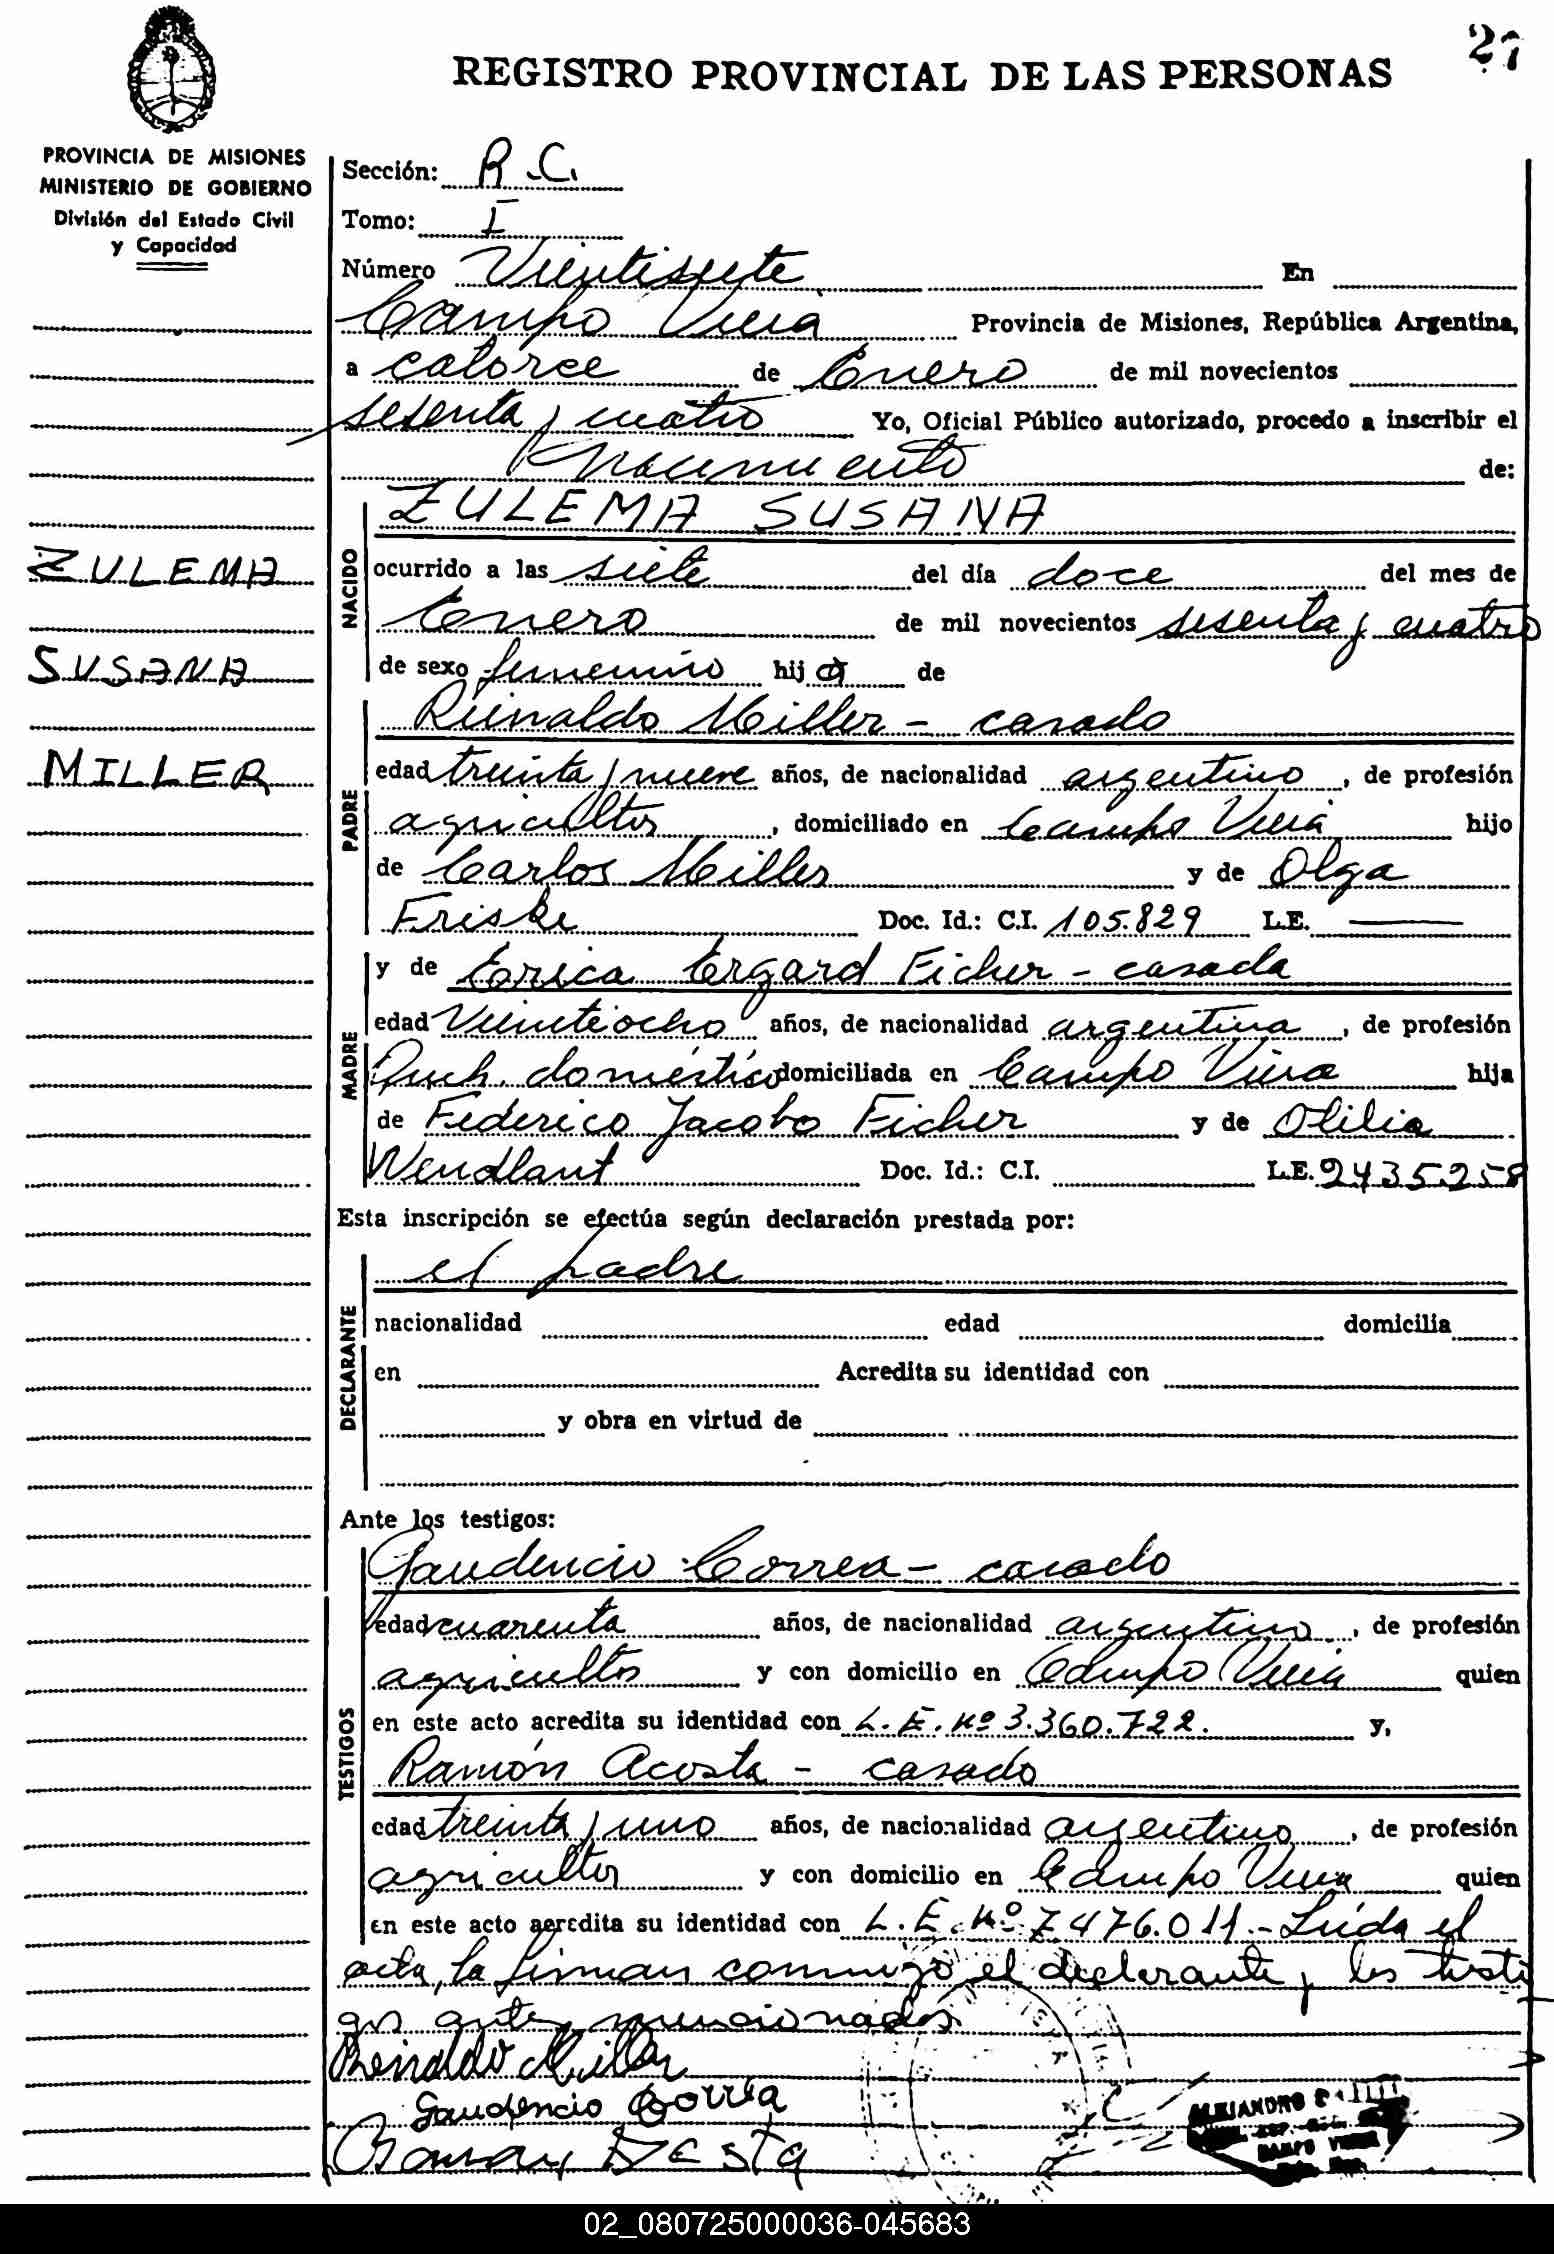 27
REGISTRO PROVINCIAL DE LAS PERSONAS
PROVINCIA DE MISIONES
MINISTERIO DE GOBIERNO
División del Estado Civil
y Capacidad
ZULEMA
SUSANA
MILLER
Sección: R.C.
Tomo: I
Número Veintisiete En
Campo Viera Provincia de Misiones, República Argentina,
a catorce de Enero de mil novecientos
sesenta y cuatro Yo, Oficial Público autorizado, procedo a inscribir el
nacimiento de:
ZULEMA SUSANA
NACIDO
ocurrido a las siete del día doce del mes de
Enero de mil novecientos sesenta y cuatro
de sexo femenino hija de
Reinaldo Miller - casado
PADRE
edad treinta y nueve años, de nacionalidad argentino, de profesión
agricultor, domiciliado en Campo Viera hijo
de Carlos Miller y de Olga
Friske Doc. Id.: C.I. 105.829 L.E. ——
y de Erica Ergard Ficher - casada
MADRE
edad Veinteocho años, de nacionalidad argentina, de profesión
Queh. doméstico domiciliada en Campo Viera hija
de Federico Jacobo Ficher y de Olilia
Wendlant Doc. Id.: C.I. L.E. 2435.258
Esta inscripción se efectúa según declaración prestada por:
el padre
DECLARANTE
nacionalidad edad domicilia
en Acredita su identidad con
y obra en virtud de
Ante los testigos:
Gaudencio Correa - casado
TESTIGOS
edad cuarenta años, de nacionalidad argentino, de profesión
agricultor y con domicilio en Campo Viera quien
en este acto acredita su identidad con L.E. Nº 3.360.722. y,
Ramón Acosta - casado
edad treinta y uno años, de nacionalidad argentino, de profesión
agricultor y con domicilio en Campo Viera quien
en este acto acredita su identidad con L.E. Nº 7.476.011.- Leída el
acta, la firman conmigo el declarante y los testi
gos antes mencionados
Reinaldo Miller
Gaudencio Correa
ALEJANDRO
CAMPO VIERA
02_080725000036-045683